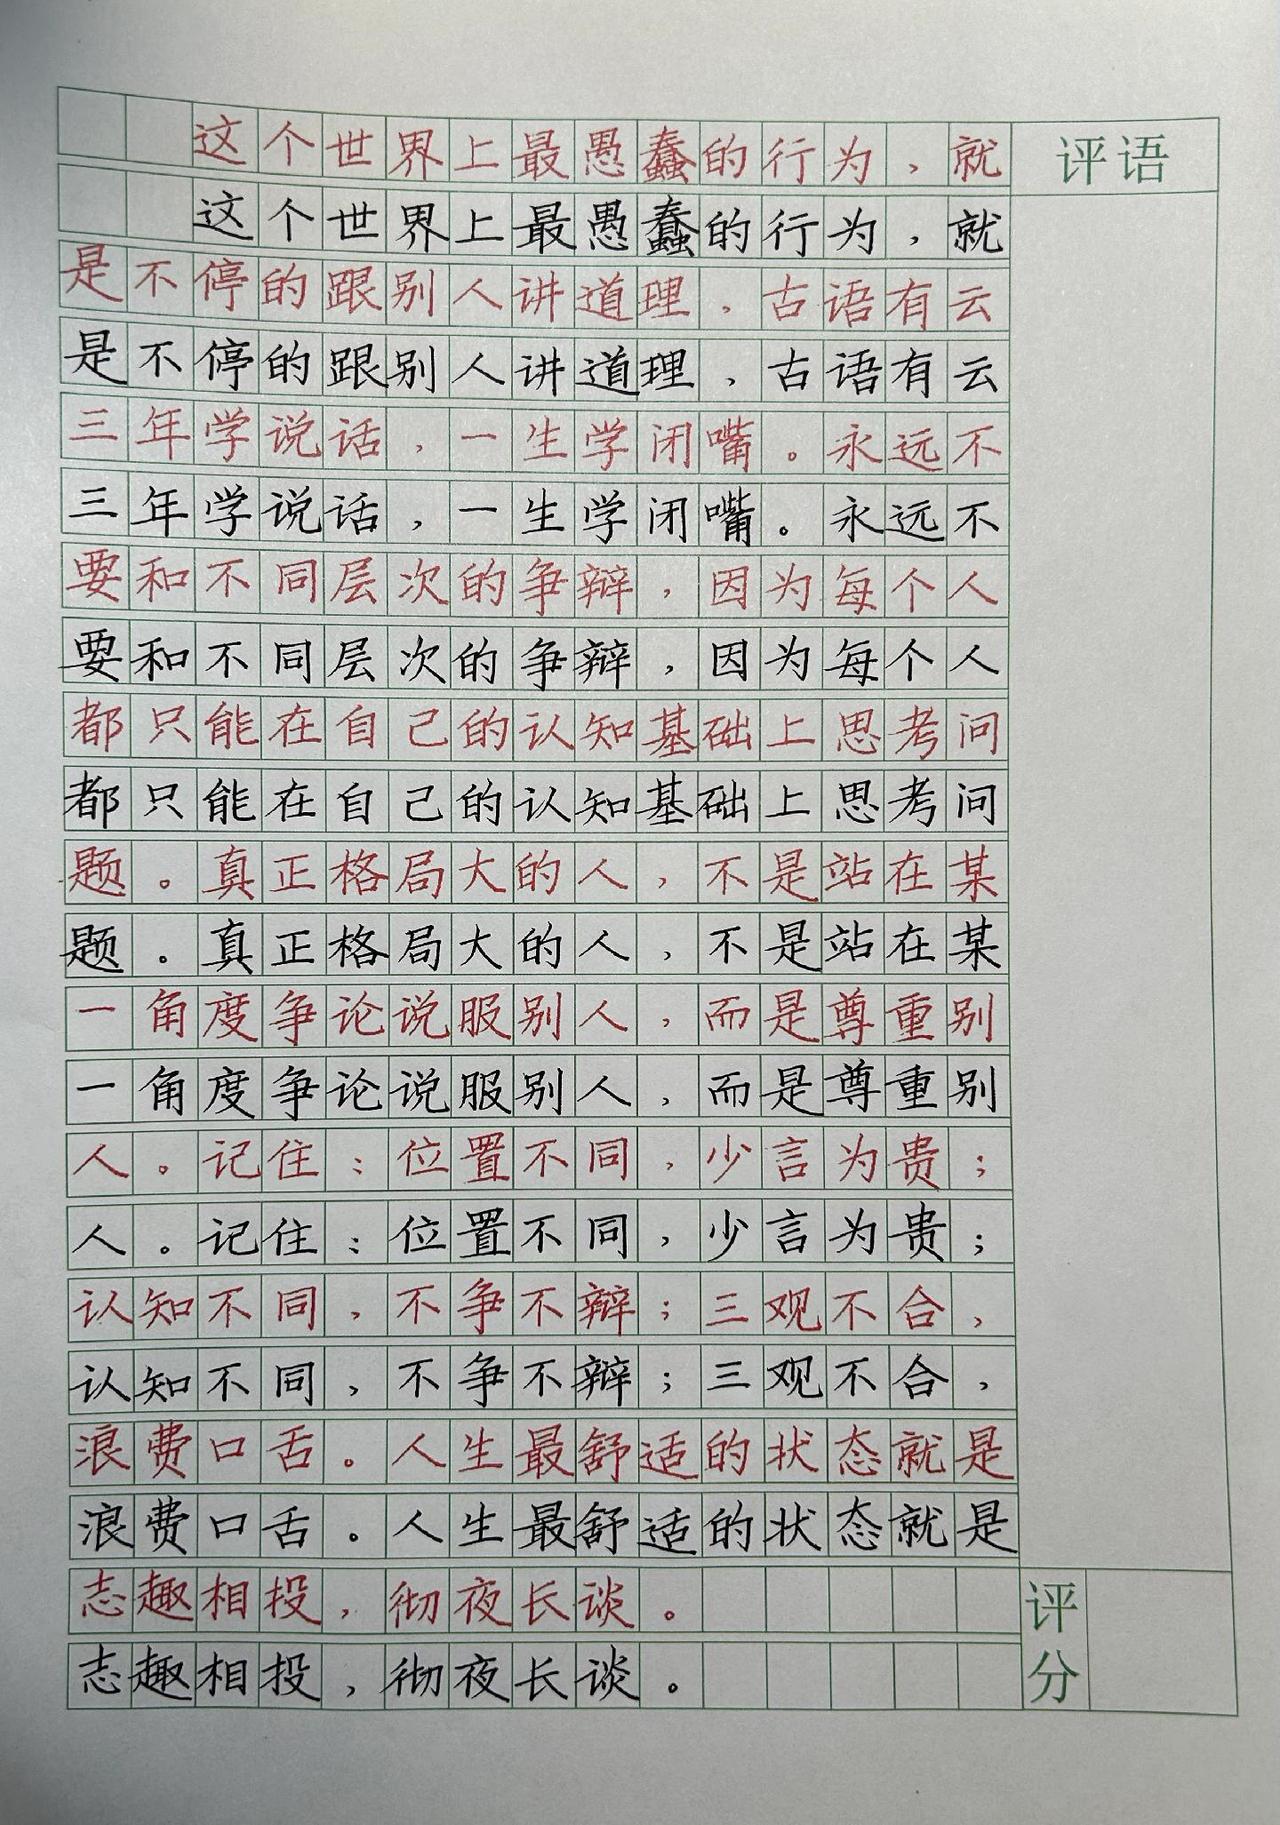 这个世界上最愚蠢的行为，就
评语
这个世界上最愚蠢的行为，就
是不停的跟别人讲道理，古语有云
是不停的跟别人讲道理，古语有云
三年学说话，一生学闭嘴。永远不
三年学说话，一生学闭嘴。永远不
要和不同层次的争辩，因为每个人
要和不同层次的争辩，因为每个人
都只能在自己的认知基础上思考问
都只能在自己的认知基础上思考问
题。真正格局大的人，不是站在某
题。真正格局大的人，不是站在某
一角度争论说服别人，而是尊重别
一角度争论说服别人，而是尊重别
人。记住：位置不同，少言为贵；
人。记住：位置不同，少言为贵；
认知不同，不争不辩；三观不合，
认知不同，不争不辩；三观不合，
浪费口舌。人生最舒适的状态就是
浪费口舌。人生最舒适的状态就是
志趣相投，彻夜长谈。
志趣相投，彻夜长谈。
评分